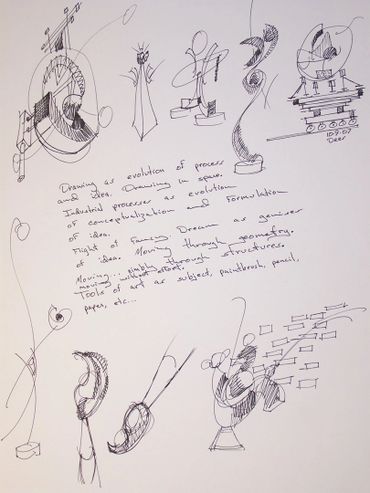 10.7.07
Deer
Drawing as evolution of process
and idea. Drawing in space.
Industrial processes as evolution
of conceptualization and Formulation
of idea.
Flight of Fancy, Dream as geniser
of idea. Moving through geometry.
Moving... nimbly through structures.
moving without effort.
Tools of art as subject, paintbrush, pencil,
paper, etc...